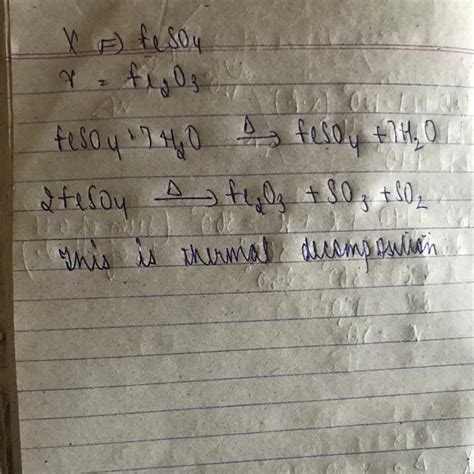 X ⇒ feSO4
Y = fe2O3
feSO4·7H2O Δ→ feSO4 + 7H2O
2feSO4 Δ→ fe2O3 + SO3 + SO2
This is thermal decomposition